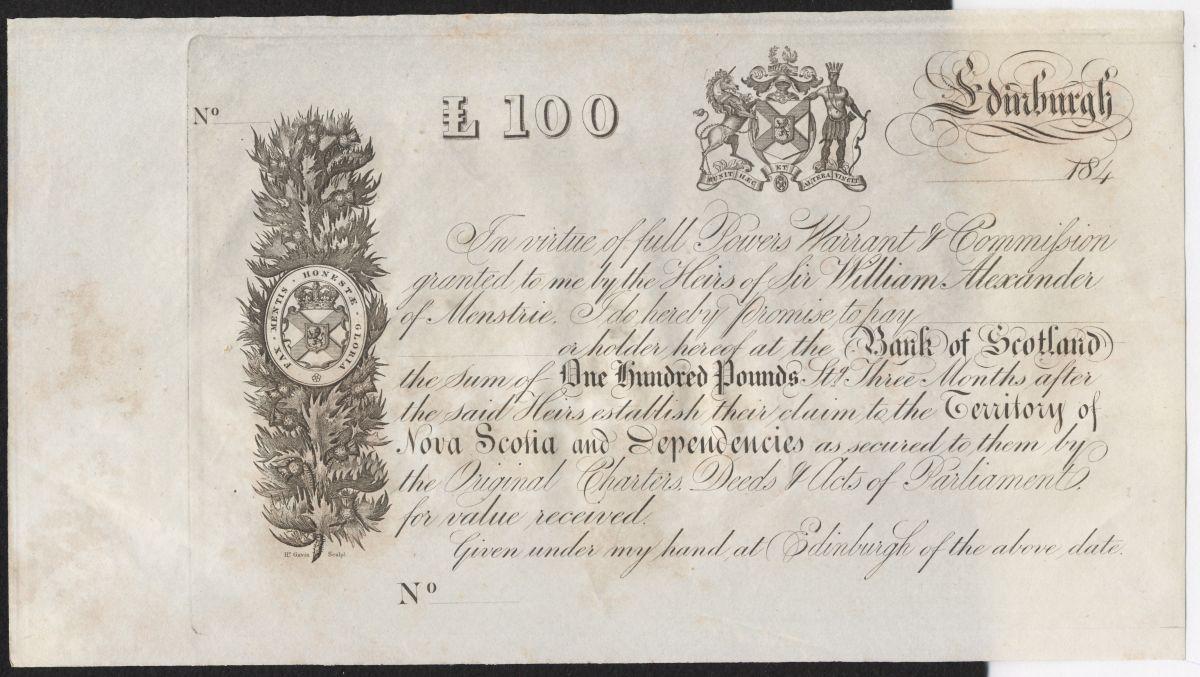 Nº
£ 100
MUNIT HÆC ET ALTERA VINCIT
Edinburgh
184
In virtue of full Powers Warrant & Commission
granted to me by the Heirs of Sir William Alexander
of Menstrie. I do hereby promise to pay
or holder hereof at the Bank of Scotland
the sum of One Hundred Pounds Stg. Three Months after
the said Heirs establish their claim to the Territory of
Nova Scotia and Dependencies as secured to them by
the Original Charters, Deeds & Acts of Parliament
for value received.
Given under my hand at Edinburgh of the above date.
Nº
PAX · MENTIS · HONESTÆ · GLORIA
Hr. Gavin Sculpt.